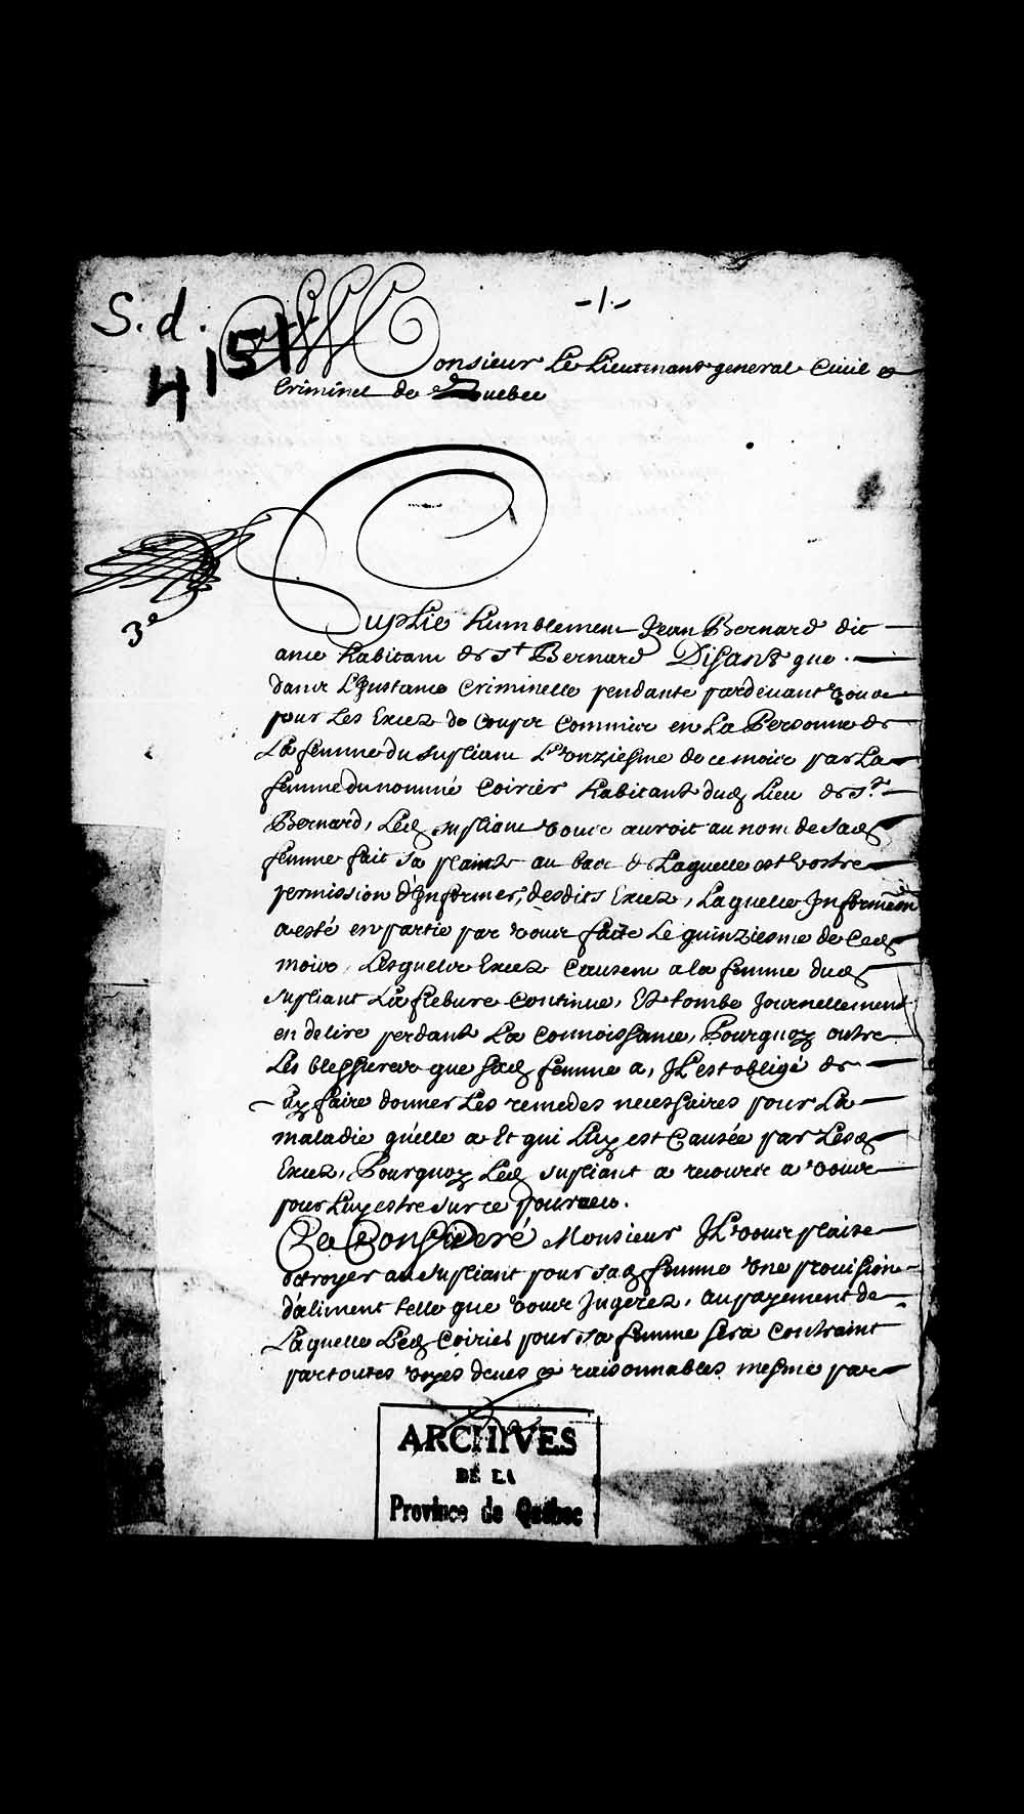 S. d.
-1-
4151
Monsieur Le Lieutenant general Civil &
Criminel de Quebec
3e
Suplie humblement Jean Bernard dit
ance habitant de St Bernard Disant que
dans L'Instance Criminelle pendante pardevant vous
pour Les Excez de coups Commis en La Personne de
La femme du supliant L'onziesme de ce mois par La
femme du nommé Coirier habitant dud Lieu de St
Bernard, Led supliant vous auroit au nom de sad
femme fait sa plainte au bas de Laquelle est vostre
permission d'Informer, desdits Excez, Laquelle Informaon
a esté en partie par vous faite Le quinziesme de Ced
mois, Lesquels Excez Causent a la femme dud
supliant La fiebure Continue, Et tombe Journellement
en delire perdant La Connoissance, Pourquoy outre
Les blessures que sad femme a, Il est obligé de
Luy faire donner Les remedes necessaires pour La
maladie qu'elle a Et qui Luy est Causée par Lesd
Excez, Pourquoy Led supliant a recours a vous
pour Luy estre sur ce pourveu.
Ce Consideré Monsieur Il vous plaise
octroyer au supliant pour sad femme une prouision
d'aliment telle que vous Jugerez, au payement de
Laquelle Led Coirier pour sa femme sera Contraint
par toutes voyes deues & raisonnables mesme par
ARCHIVES
DE LA
Province de Québec